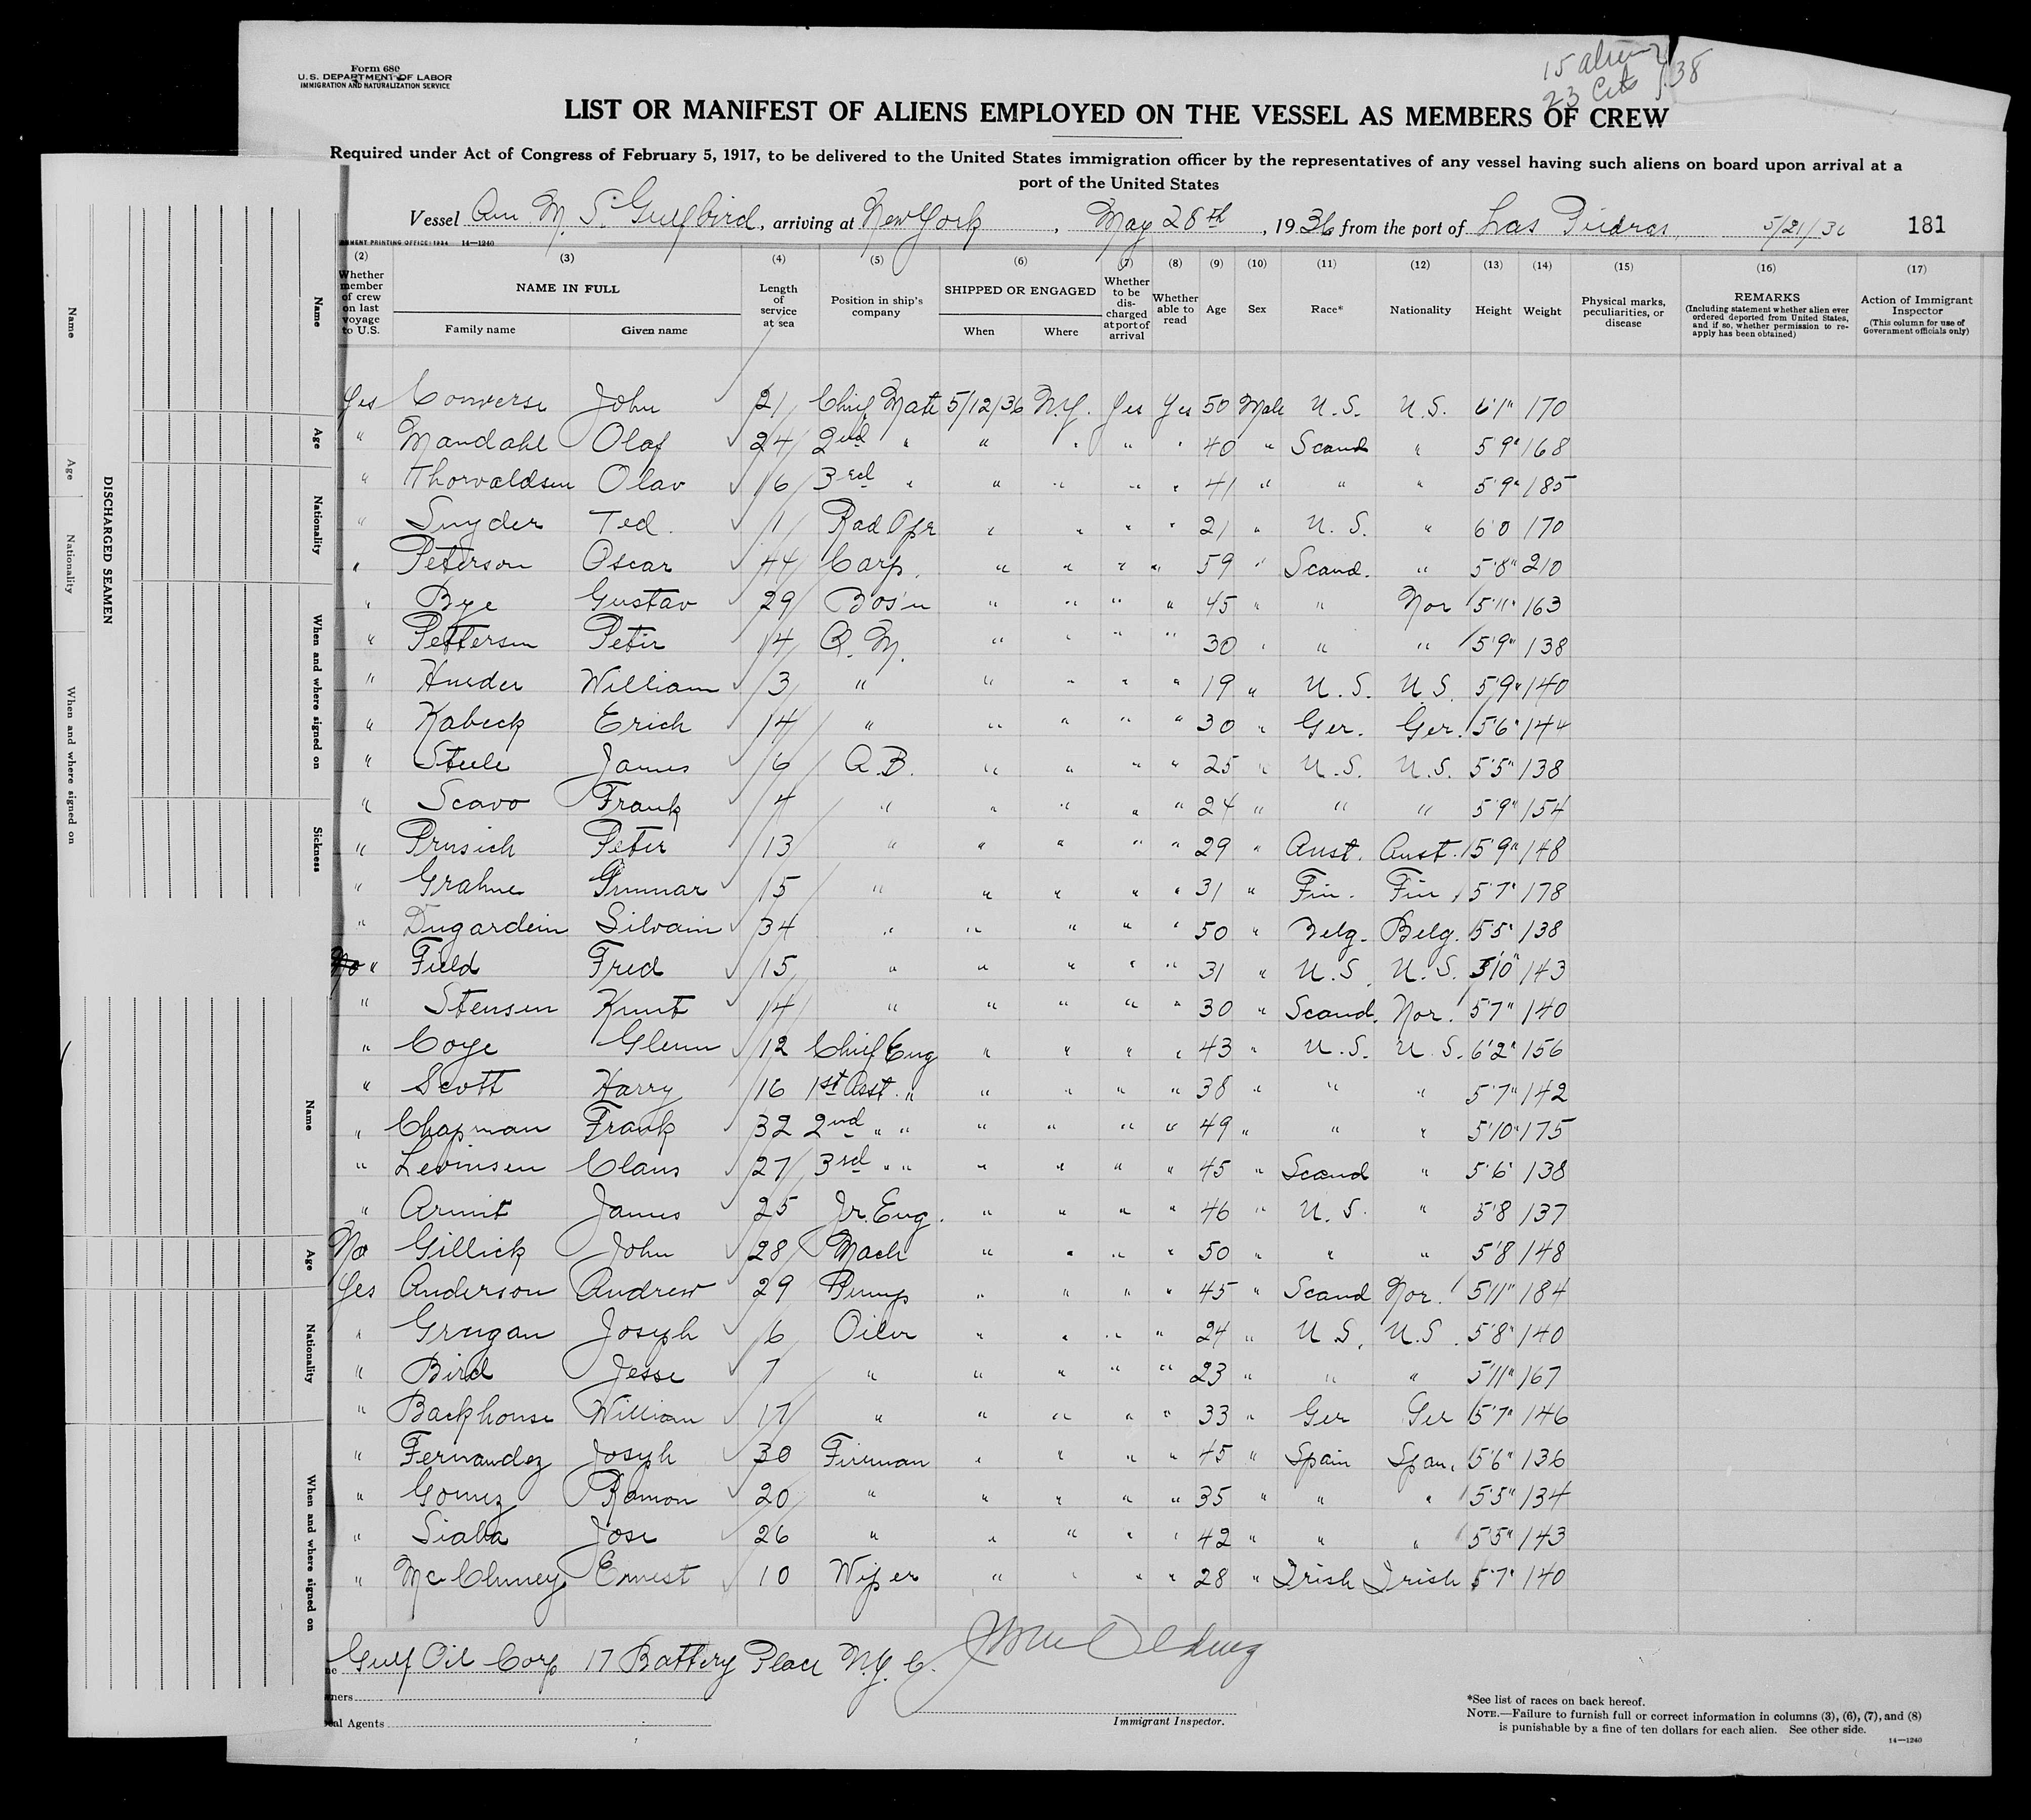 Form 680
U.S. DEPARTMENT OF LABOR
IMMIGRATION AND NATURALIZATION SERVICE
15 alien
23 Cits 38
LIST OR MANIFEST OF ALIENS EMPLOYED ON THE VESSEL AS MEMBERS OF CREW
Required under Act of Congress of February 5, 1917, to be delivered to the United States immigration officer by the representatives of any vessel having such aliens on board upon arrival at a
port of the United States
Vessel Am. M. S. Gulfbird, arriving at New York, May 28th, 1936 from the port of Las Piedras, 5/21/36 181
MENT PRINTING OFFICE: 1934 14—1240
(2) Whether member of crew on last voyage to U.S.
(3) NAME IN FULL Family name Given name
(4) Length of service at sea
(5) Position in ship's company
(6) SHIPPED OR ENGAGED When Where
(7) Whether to be discharged at port of arrival
(8) Whether able to read
(9) Age
(10) Sex
(11) Race*
(12) Nationality
(13) Height
(14) Weight
(15) Physical marks, peculiarities, or disease
(16) REMARKS (Including statement whether alien ever ordered deported from United States, and if so, whether permission to re-apply has been obtained)
(17) Action of Immigrant Inspector (This column for use of Government officials only)
Yes Converse John 21 Chief Mate 5/12/36 N.Y. Yes Yes 50 Male U.S. U.S. 6'1" 170
" Mandahl Olaf 24 2nd " " " " " 40 " Scand " 5'9" 168
" Thorvaldsen Olav 16 3rd " " " " " 41 " " " 5'9" 185
" Snyder Ted. 1 Rad Opr " " " " 21 " U.S. " 6'0 170
" Peterson Oscar 44 Carp. " " " " 59 " Scand. " 5'8" 210
" Bye Gustav 29 Bos'n " " " " 45 " " Nor 5'11" 163
" Pettersen Peter 14 Q.M. " " " " 30 " " " 5'9" 138
" William 3 " " " " " 19 " U.S. U.S. 5'9" 140
" Kabeck Erich 14 " " " " " 30 " Ger. Ger. 5'6" 144
" Steele James 6 A.B. " " " " 25 " U.S. U.S. 5'5" 138
" Scavo Frank 4 " " " " " 24 " " " 5'9" 154
" Prusich Peter 13 " " " " " 29 " Aust. Aust. 5'9" 148
" Grahne Gunnar 15 " " " " " 31 " Fin. Fin 5'7" 178
" Dugardein Silvain 34 " " " " " 50 " Belg. Belg. 5'5" 138
No " Field Fred 15 " " " " " 31 " U.S. U.S. 5'10" 143
" Stensen Knut 14 " " " " " 30 " Scand. Nor. 5'7" 140
" Coye Glenn 12 Chief Eng " " " " 43 " U.S. U.S. 6'2" 156
" Scott Harry 16 1st Asst. " " " " " 38 " " " 5'7" 142
" Chapman Frank 32 2nd " " " " " " 49 " " " 5'10" 175
" Levinsen Claus 27 3rd " " " " " " 45 " Scand " 5'6" 138
" Armit James 25 Jr. Eng. " " " " 46 " U.S. " 5'8 137
No Gillick John 28 Mach " " " " 50 " " " 5'8 148
Yes Anderson Andrew 29 Pump " " " " 45 " Scand Nor. 5'11" 184
" Grugan Joseph 6 Oiler " " " " 24 " U.S. U.S. 5'8" 140
" Bird Jesse 7 " " " " " 23 " " " 5'11" 167
" Backhouse William 17 " " " " " 33 " Ger Ger 5'7" 146
" Fernandez Joseph 30 Fireman " " " " 45 " Spain Span. 5'6" 136
" Gomez Ramon 20 " " " " " 35 " " " 5'5" 134
" Siaba Jose 26 " " " " " 42 " " " 5'5" 143
" Ernest 10 Wiper " " " " 28 " Irish Irish 5'7" 140
Gulf Oil Corp 17 Battery Place N.Y.C.
Immigrant Inspector.
*See list of races on back hereof.
NOTE.—Failure to furnish full or correct information in columns (3), (6), (7), and (8)
is punishable by a fine of ten dollars for each alien. See other side.
14—1240
DISCHARGED SEAMEN
Name
Age
Nationality
When and where signed on
Sickness
Name
Age
Nationality
When and where signed on
Name
Age
Nationality
When and where signed on